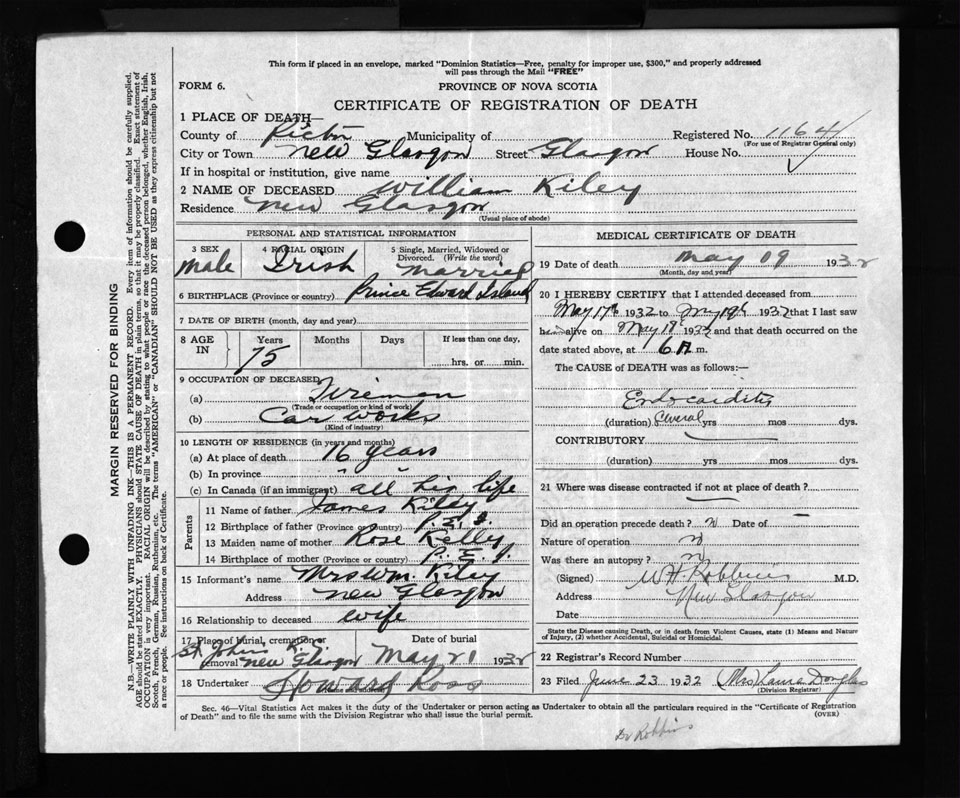 This form if placed in an envelope, marked "Dominion Statistics—Free, penalty for improper use, $300," and properly addressed
will pass through the Mail "FREE"
FORM 6.
PROVINCE OF NOVA SCOTIA
CERTIFICATE OF REGISTRATION OF DEATH
1 PLACE OF DEATH—
County of Pictou Municipality of Registered No. 1164
(For use of Registrar General only)
City or Town New Glasgow Street Glasgow House No.
If in hospital or institution, give name
2 NAME OF DECEASED William Kiley
Residence New Glasgow
(Usual place of abode)
PERSONAL AND STATISTICAL INFORMATION
3 SEX 4 RACIAL ORIGIN 5 Single, Married, Widowed or Divorced. (Write the word)
Male Irish Married
6 BIRTHPLACE (Province or country) Prince Edward Island
7 DATE OF BIRTH (month, day and year)
8 AGE IN Years Months Days If less than one day,
75 hrs. or min.
9 OCCUPATION OF DECEASED
(a) Fireman
(Trade or occupation or kind of work)
(b) Car works
(Kind of industry)
10 LENGTH OF RESIDENCE (in years and months)
(a) At place of death 16 years
(b) In province " "
(c) In Canada (if an immigrant) all his life
Parents
11 Name of father James Kiley
12 Birthplace of father (Province or country) P.E.I.
13 Maiden name of mother Rose Kelley
14 Birthplace of mother (Province or country) P.E.I.
15 Informant's name Mrs Wm Kiley
Address New Glasgow
16 Relationship to deceased wife
17 Place of burial, cremation or removal St Johns New Glasgow
Date of burial May 21 1932
18 Undertaker Howard Ross
(Name and address)
MEDICAL CERTIFICATE OF DEATH
19 Date of death May 19 1932
(Month, day and year)
20 I HEREBY CERTIFY that I attended deceased from
May 17th 1932 to May 19th 1932 that I last saw
him alive on May 18th 1932 and that death occurred on
date stated above, at 6 A. m.
The CAUSE of DEATH was as follows:—
Endocarditis
(duration) Several yrs mos dys.
CONTRIBUTORY
(duration) yrs mos dys.
21 Where was disease contracted if not at place of death?
Did an operation precede death? no Date of —
Nature of operation
Was there an autopsy? no
(Signed) W.H. Robbins M.D.
Address New Glasgow
Date
State the Disease causing Death, or in death from Violent Causes, state (1) Means and Nature
of Injury, (2) whether Accidental, Suicidal or Homicidal.
22 Registrar's Record Number
23 Filed June 23 1932 (Mrs) Laura Douglas
(Division Registrar)
Sec. 46—Vital Statistics Act makes it the duty of the Undertaker or person acting as Undertaker to obtain all the particulars required in the "Certificate of Registration
of Death" and to file the same with the Division Registrar who shall issue the burial permit.
(OVER)
Dr Robbins
MARGIN RESERVED FOR BINDING
N.B.—WRITE PLAINLY WITH UNFADING INK—THIS IS A PERMANENT RECORD. Every item of information should be carefully supplied.
AGE should be stated EXACTLY. PHYSICIANS should STATE CAUSE OF DEATH in plain terms, so that it may be properly classified. Exact statement of
OCCUPATION is very important. RACIAL ORIGIN will be described by stating to what people or race the deceased person belonged, whether English, Irish,
Scotch, French, German, Russian, Ruthenian, etc. The terms "AMERICAN" or "CANADIAN" SHOULD NOT BE USED as they express citizenship but not
a race or people. See instructions on back of Certificate.